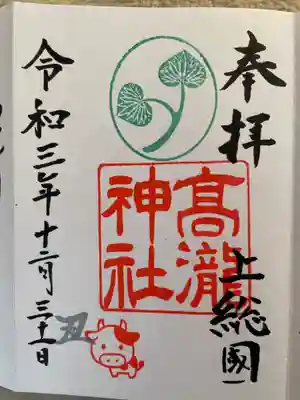 奉拝
上総國
髙瀧
神社
令和三年十二月三十一日
丑